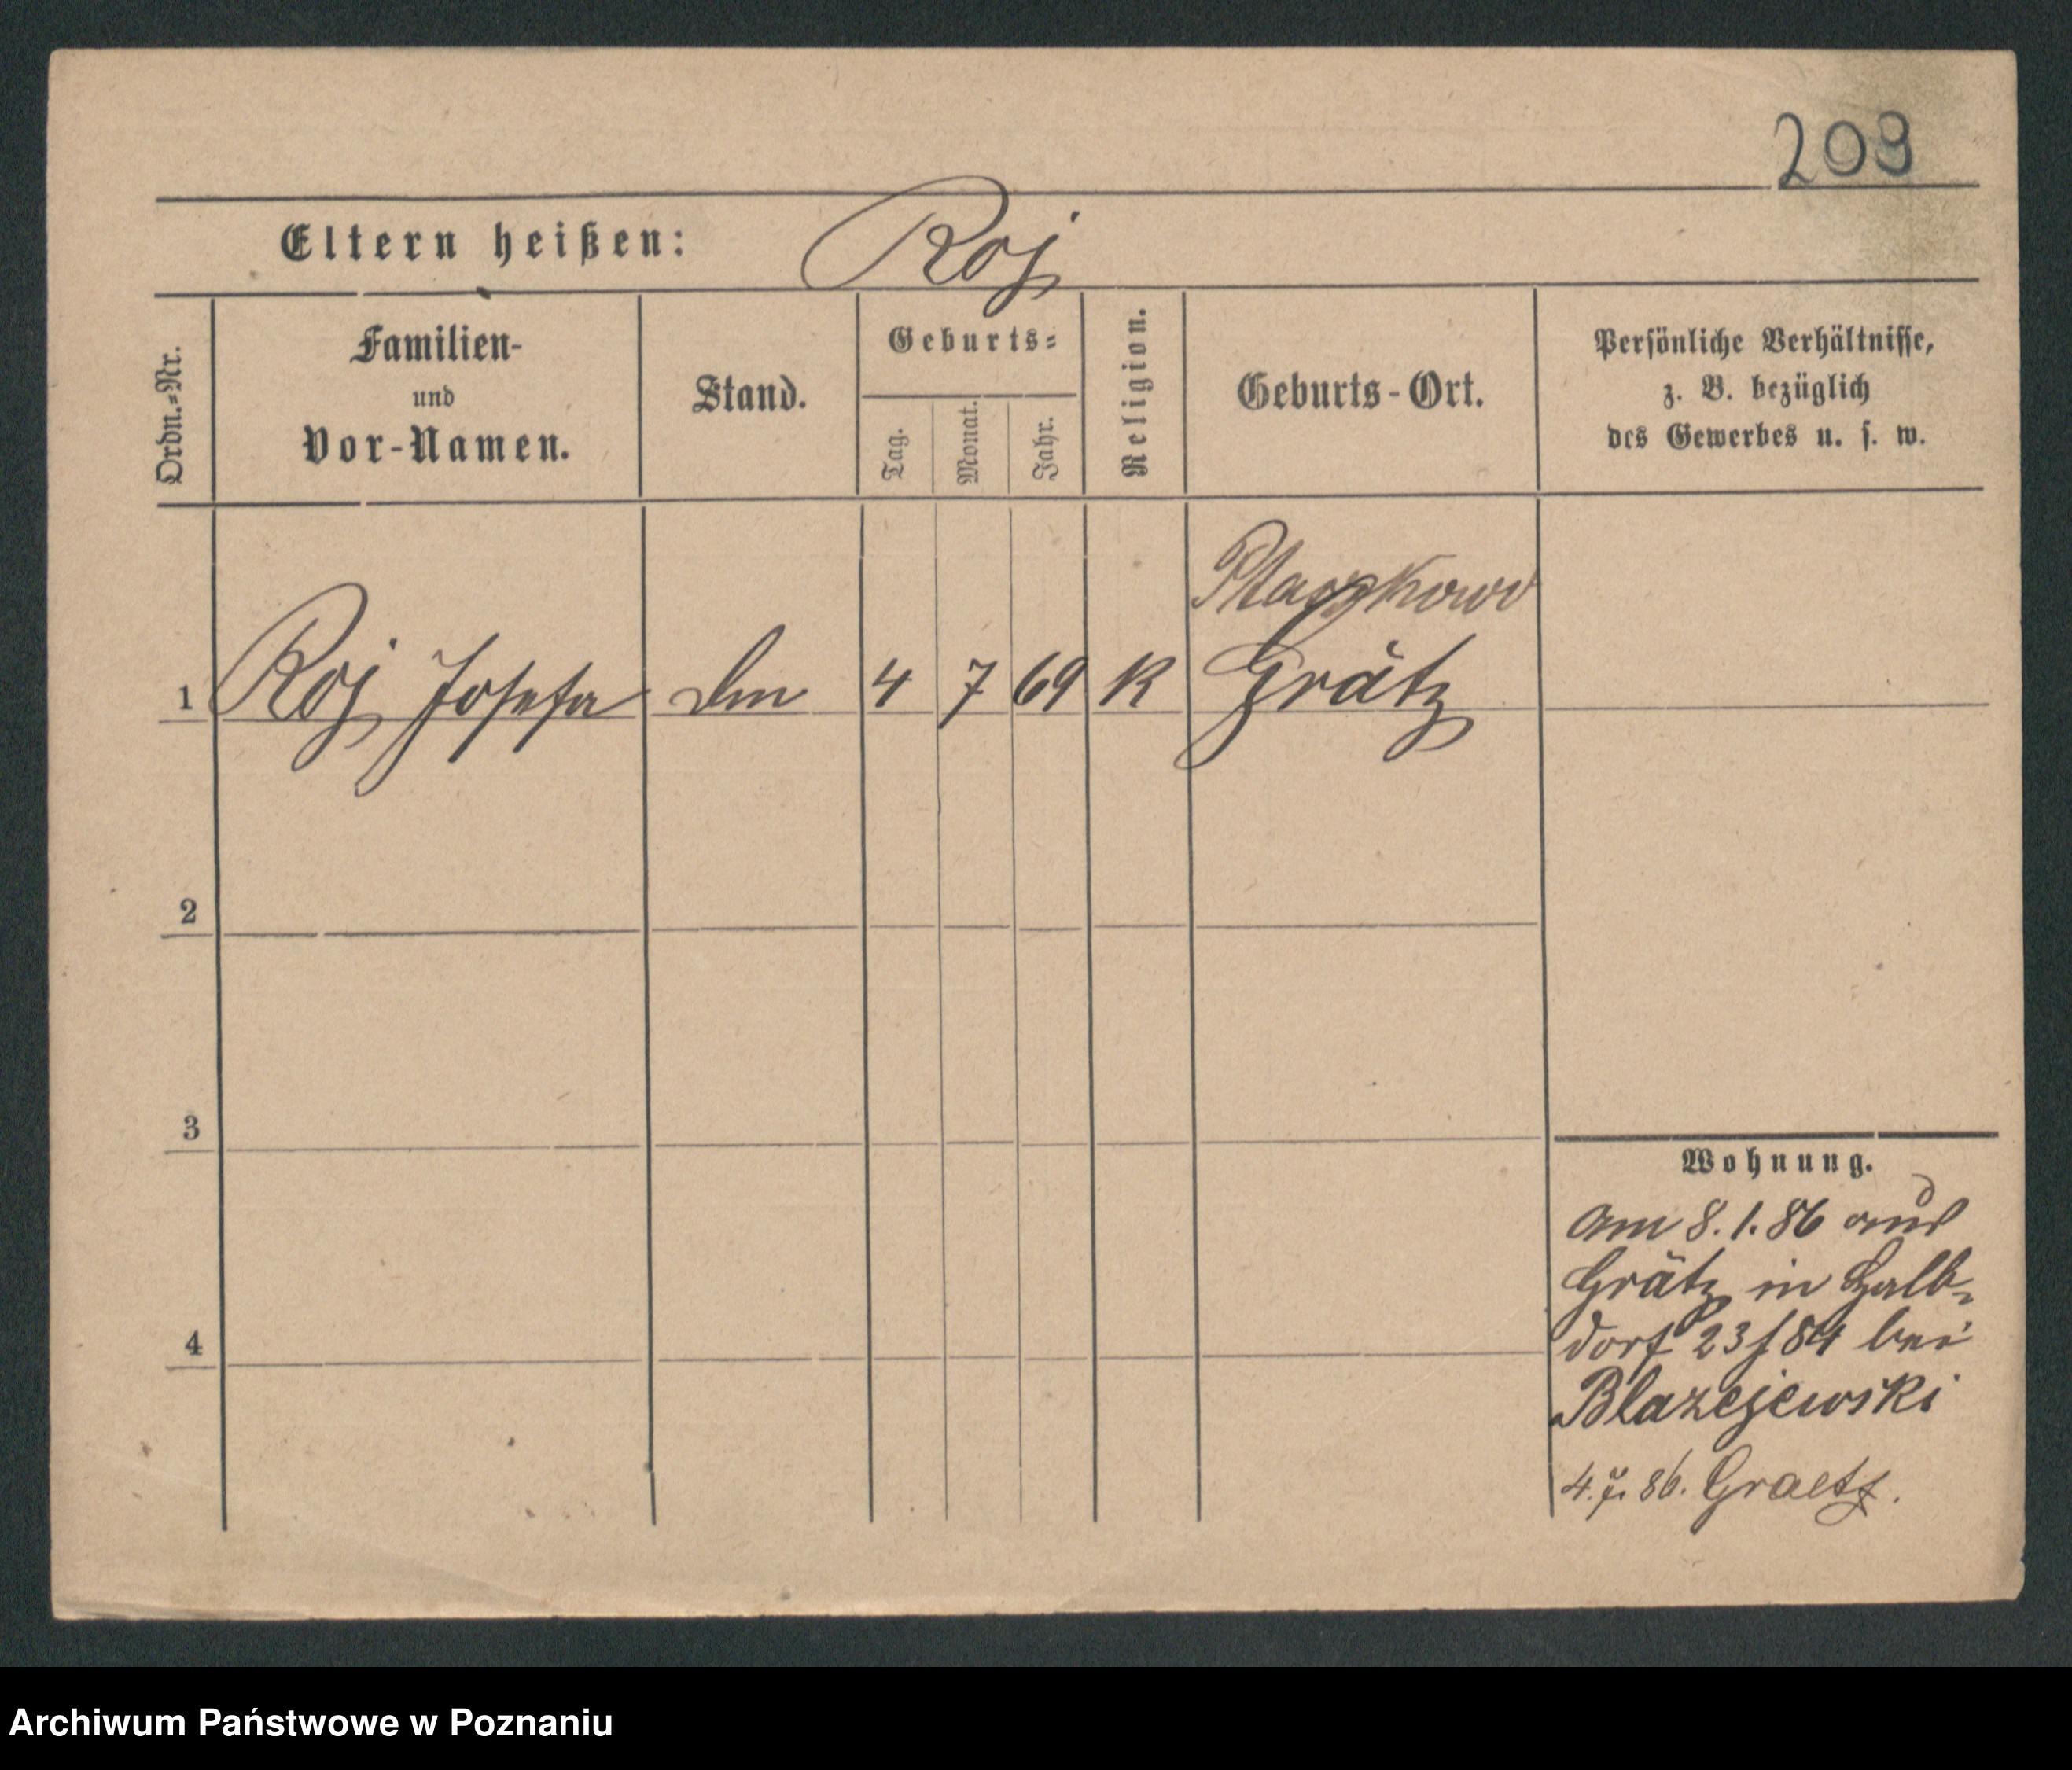 209
Eltern heißen: Roj
Ordn.=Nr.
Familien-
und
Vor-Namen.
Stand.
Geburts=
Tag.
Monat.
Jahr.
Religion.
Geburts-Ort.
Persönliche Verhältnisse,
z. B. bezüglich
des Gewerbes u. s. w.
Ptaszkowo
1 Roj Josefa Dm 4 7 69 K Grätz
2
3
4
Wohnung.
am 8.1.86 aus
Grätz in Halb-
dorf 23/84 bei
Blazejewski
4.7. 86. Graetz.
Archiwum Państwowe w Poznaniu